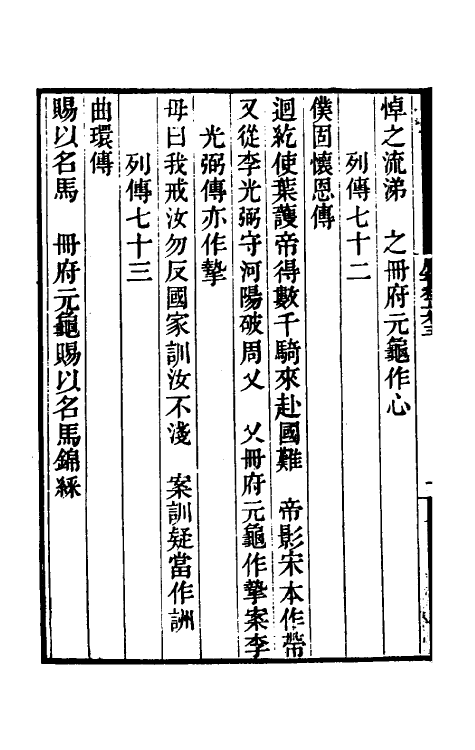 悼之流涕　之冊府元龜作心
列傳七十二
僕固懷恩傳
迴紇使葉護帝得數千騎來赴國難　帝影宋本作帶
又從李光弼守河陽破周乂　乂冊府元龜作摯案李
光弼傳亦作摯
母曰我戒汝勿反國家訓汝不淺　案訓疑當作詶
列傳七十三
曲環傳
賜以名馬　冊府元龜賜以名馬錦綵